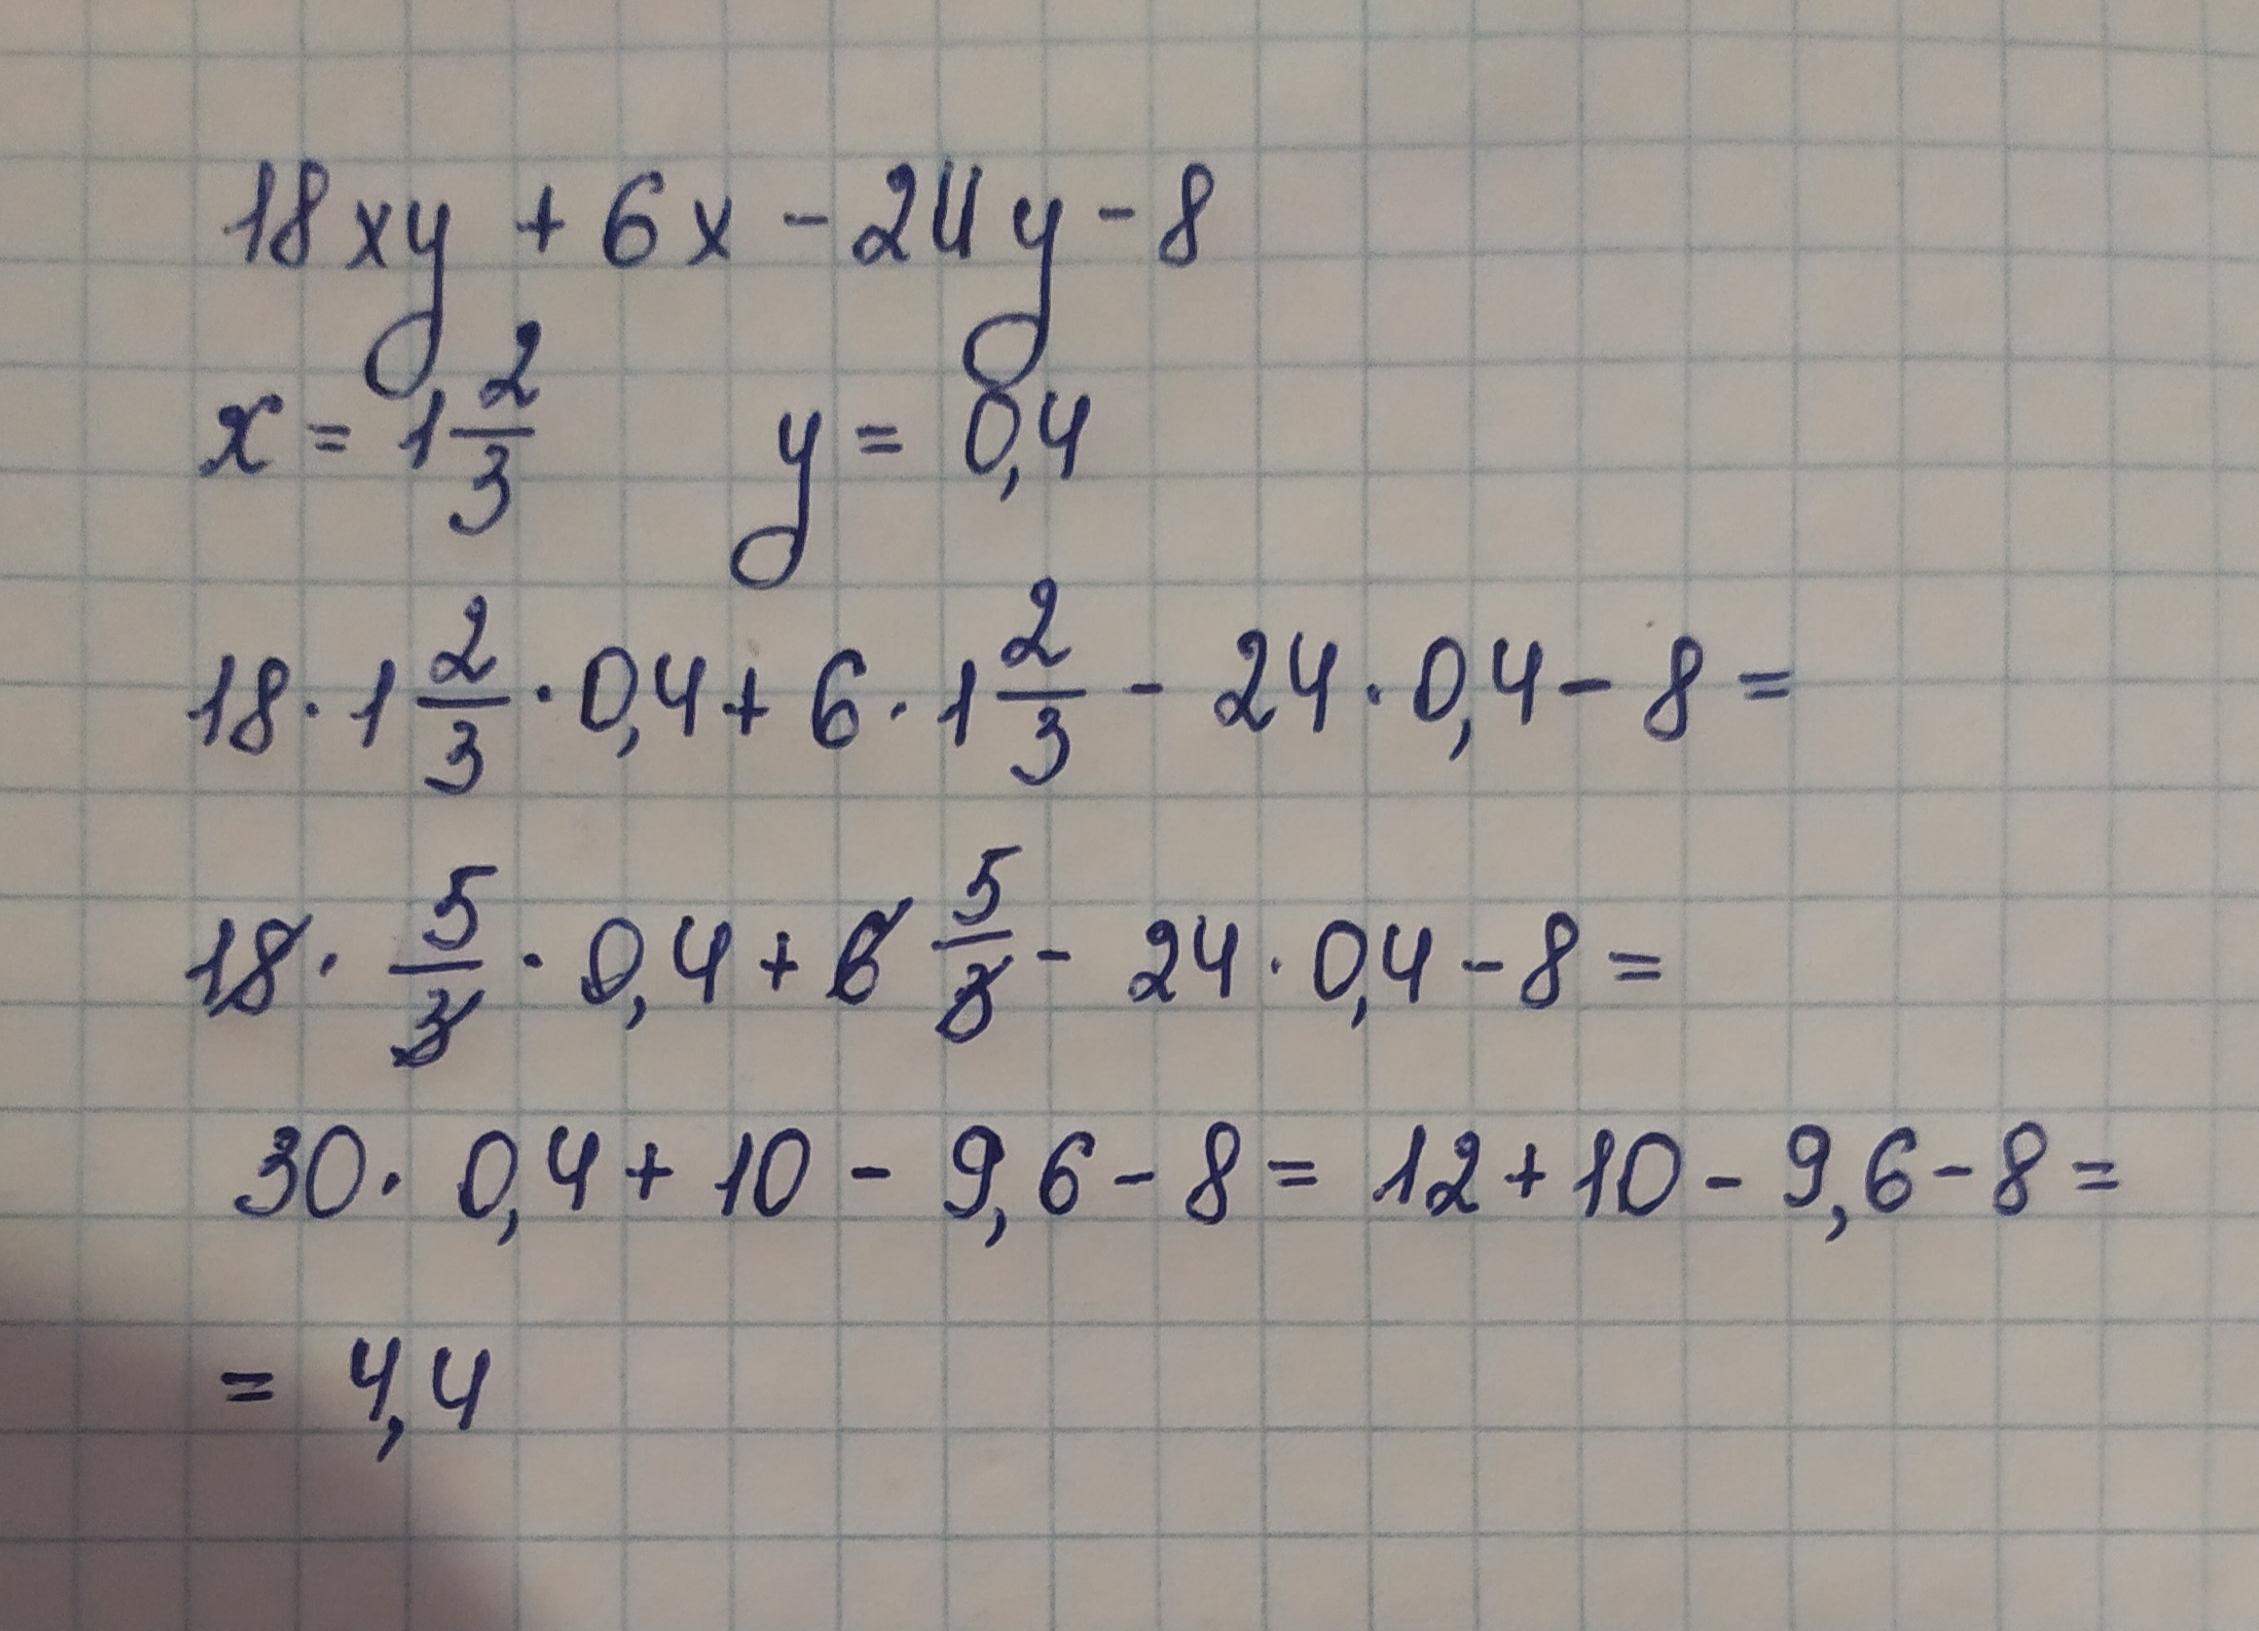 18xy + 6x - 24y - 8
x = 1 2/3 y = 0,4
18 · 1 2/3 · 0,4 + 6 · 1 2/3 - 24 · 0,4 - 8 =
18 · 5/3 · 0,4 + 6 5/3 - 24 · 0,4 - 8 =
30 · 0,4 + 10 - 9,6 - 8 = 12 + 10 - 9,6 - 8 =
= 4,4